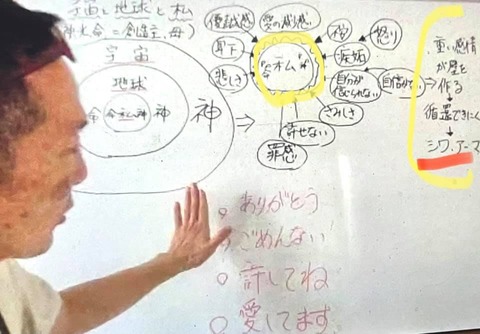 宇宙と地球と私
(神=命=創造主、母)
宇宙
地球
命 命私神 神
神
優越感
愛の減感
恨
怒り
見下
嫉妬
悲しさ
私
自分が信じられない
自信がない
さみしさ
許せない
罪悪感
重い感情
が壁を
作る
循還できにくい
シワ、アース
ありがとう
ごめんない
許してね
愛してます